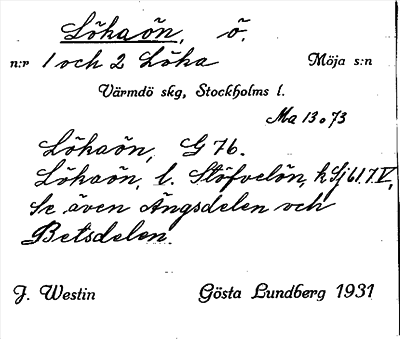 Lökaön, ö.
n:r 1 och 2 Löka Möja s:n
Värmdö skg, Stockholms l.
Ma 13073
Lökaön, G 76.
Lökaön, l. Stöfvelön, kSj 61.7.V,
Se även Ängsdelen och
Betsdelen.
J. Westin Gösta Lundberg 1931